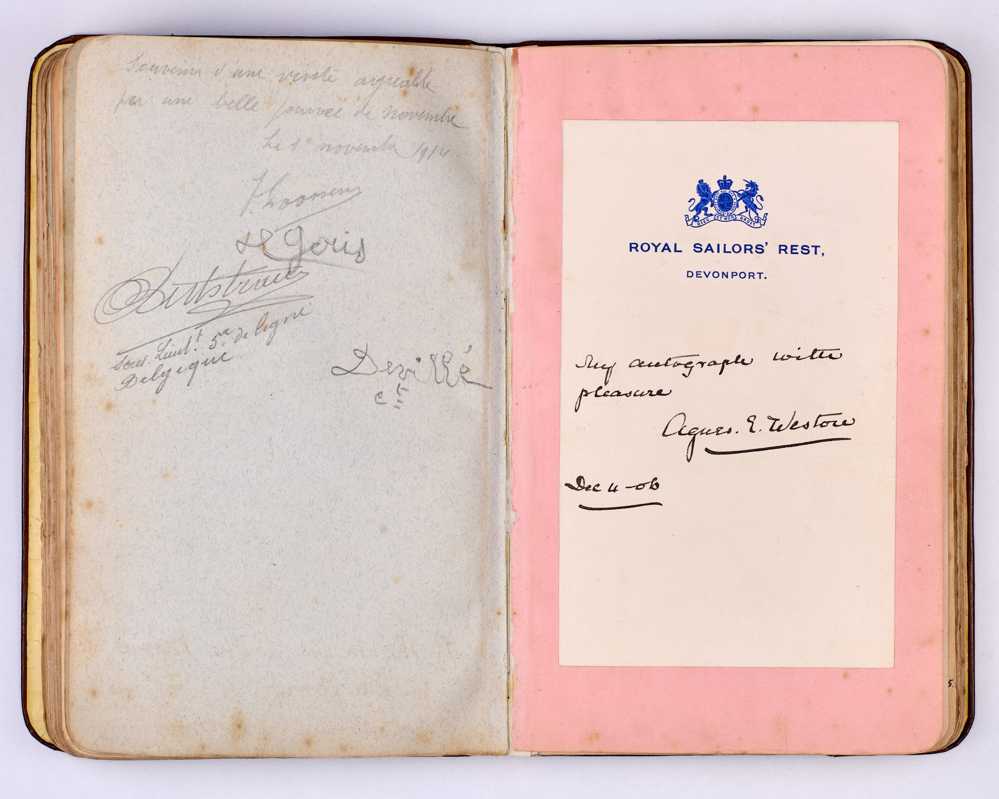 Souvenir d'une visite agréable
par une belle journée de novembre
Le 1° novembre 1914
J Goossens
Goris
Sous. Lieut.t 5me de ligne
Belgique
Devillé
ROYAL SAILORS' REST,
DEVONPORT.
My autograph with
pleasure
Agnes. E. Weston
Dec 4 - 06
5.